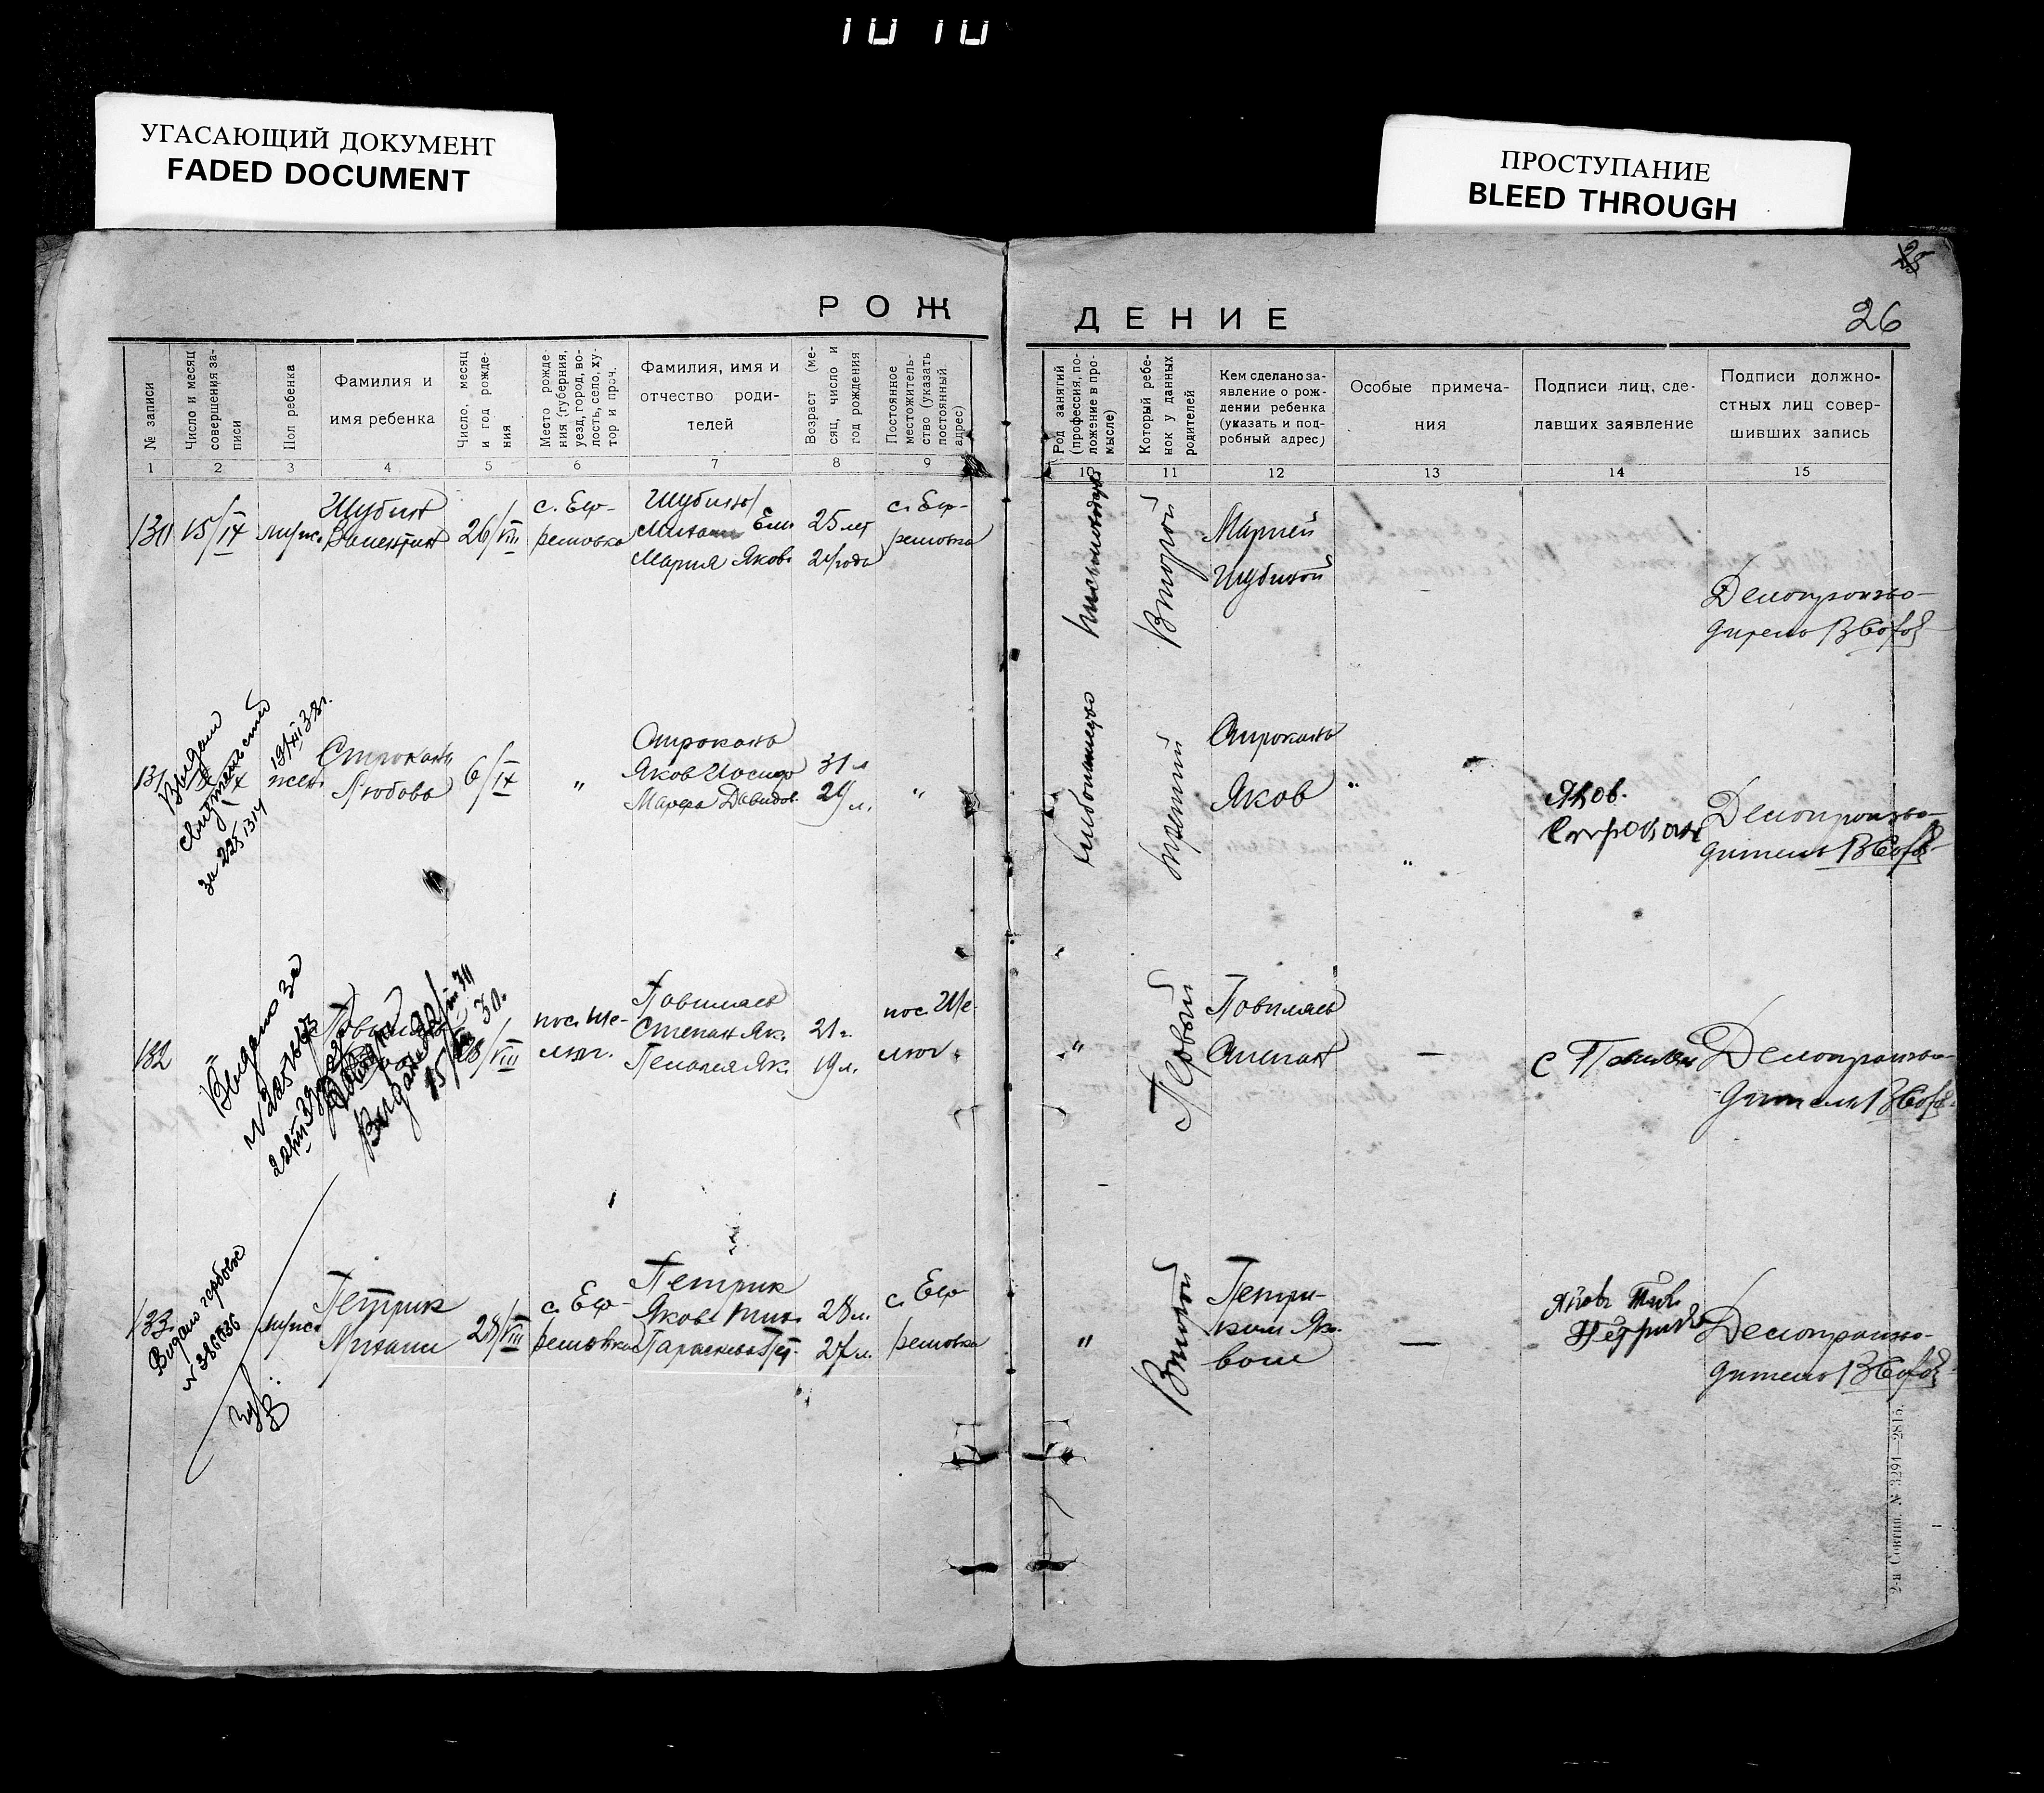 УГАСАЮЩИЙ ДОКУМЕНТ
FADED DOCUMENT
ПРОСТУПАНИЕ
BLEED THROUGH
26
РОЖ
ДЕНИЕ
№ записи
Число и месяц
совершения за-
писи
Пол ребенка
Фамилия и
имя ребенка
Число, месяц
и год рожде-
ния
Место рожде-
ния (губерния,
уезд, город, во-
лость, село, ху-
тор и проч.
Фамилия, имя и
отчество роди-
телей
Возраст (ме-
сяц, число и
год рождения
Постоянное
местожитель-
ство (указать
постоянный
адрес)
Род занятий
(профессия, по-
ложение в про-
мысле)
Который ребе-
нок у данных
родителей
Кем сделано за-
явление о рож-
дении ребенка
(указать и под-
робный адрес)
Особые примеча-
ния
Подписи лиц, сде-
лавших заявление
Подписи должно-
стных лиц совер-
шивших запись
1 2 3 4 5 6 7 8 9 10 11 12 13 14 15
130
15/IX
муж.
Шубин
Валентин
26/VIII
с. Еф-
ремовка
Шубины
Михаил
Мария Яков.
25 лет
24 года
с. Еф-
ремовка
Второй
Марией
Шубиной
Делопроизво-
дитель
131
Выдано
свидетельство
за 225 1314
жен.
Строкань
Любовь
6/IX
"
Строкань
Яков Иосифо
Марфа Давидов.
31 л
29 л.
"
хлебопашец
третий
Строкань
Яков
"
Яков
Строкань
Делопроизво-
дитель
132
Выдано за
28/VIII
пос. Ше-
люг.
Повиляев
Степан Як.
Пелагея Як.
21 г.
19 л.
пос. Ше-
люг.
"
Первый
Повиляев
Степан
—
С Повиляев
Делопроизво-
дитель
133
Видано гербове
№ 386636
муж.
Петрик
Михаил
28/VIII
с. Еф-
ремовка
Петрик
Яков Тих.
Параскева Пет.
28 л.
27 л.
с. Еф-
ремовка
"
Второй
Петри-
ком Яко-
вом
—
Яков Тих.
Петрик
Делопроизво-
дитель
2-я Совтип. № 3291—2815.